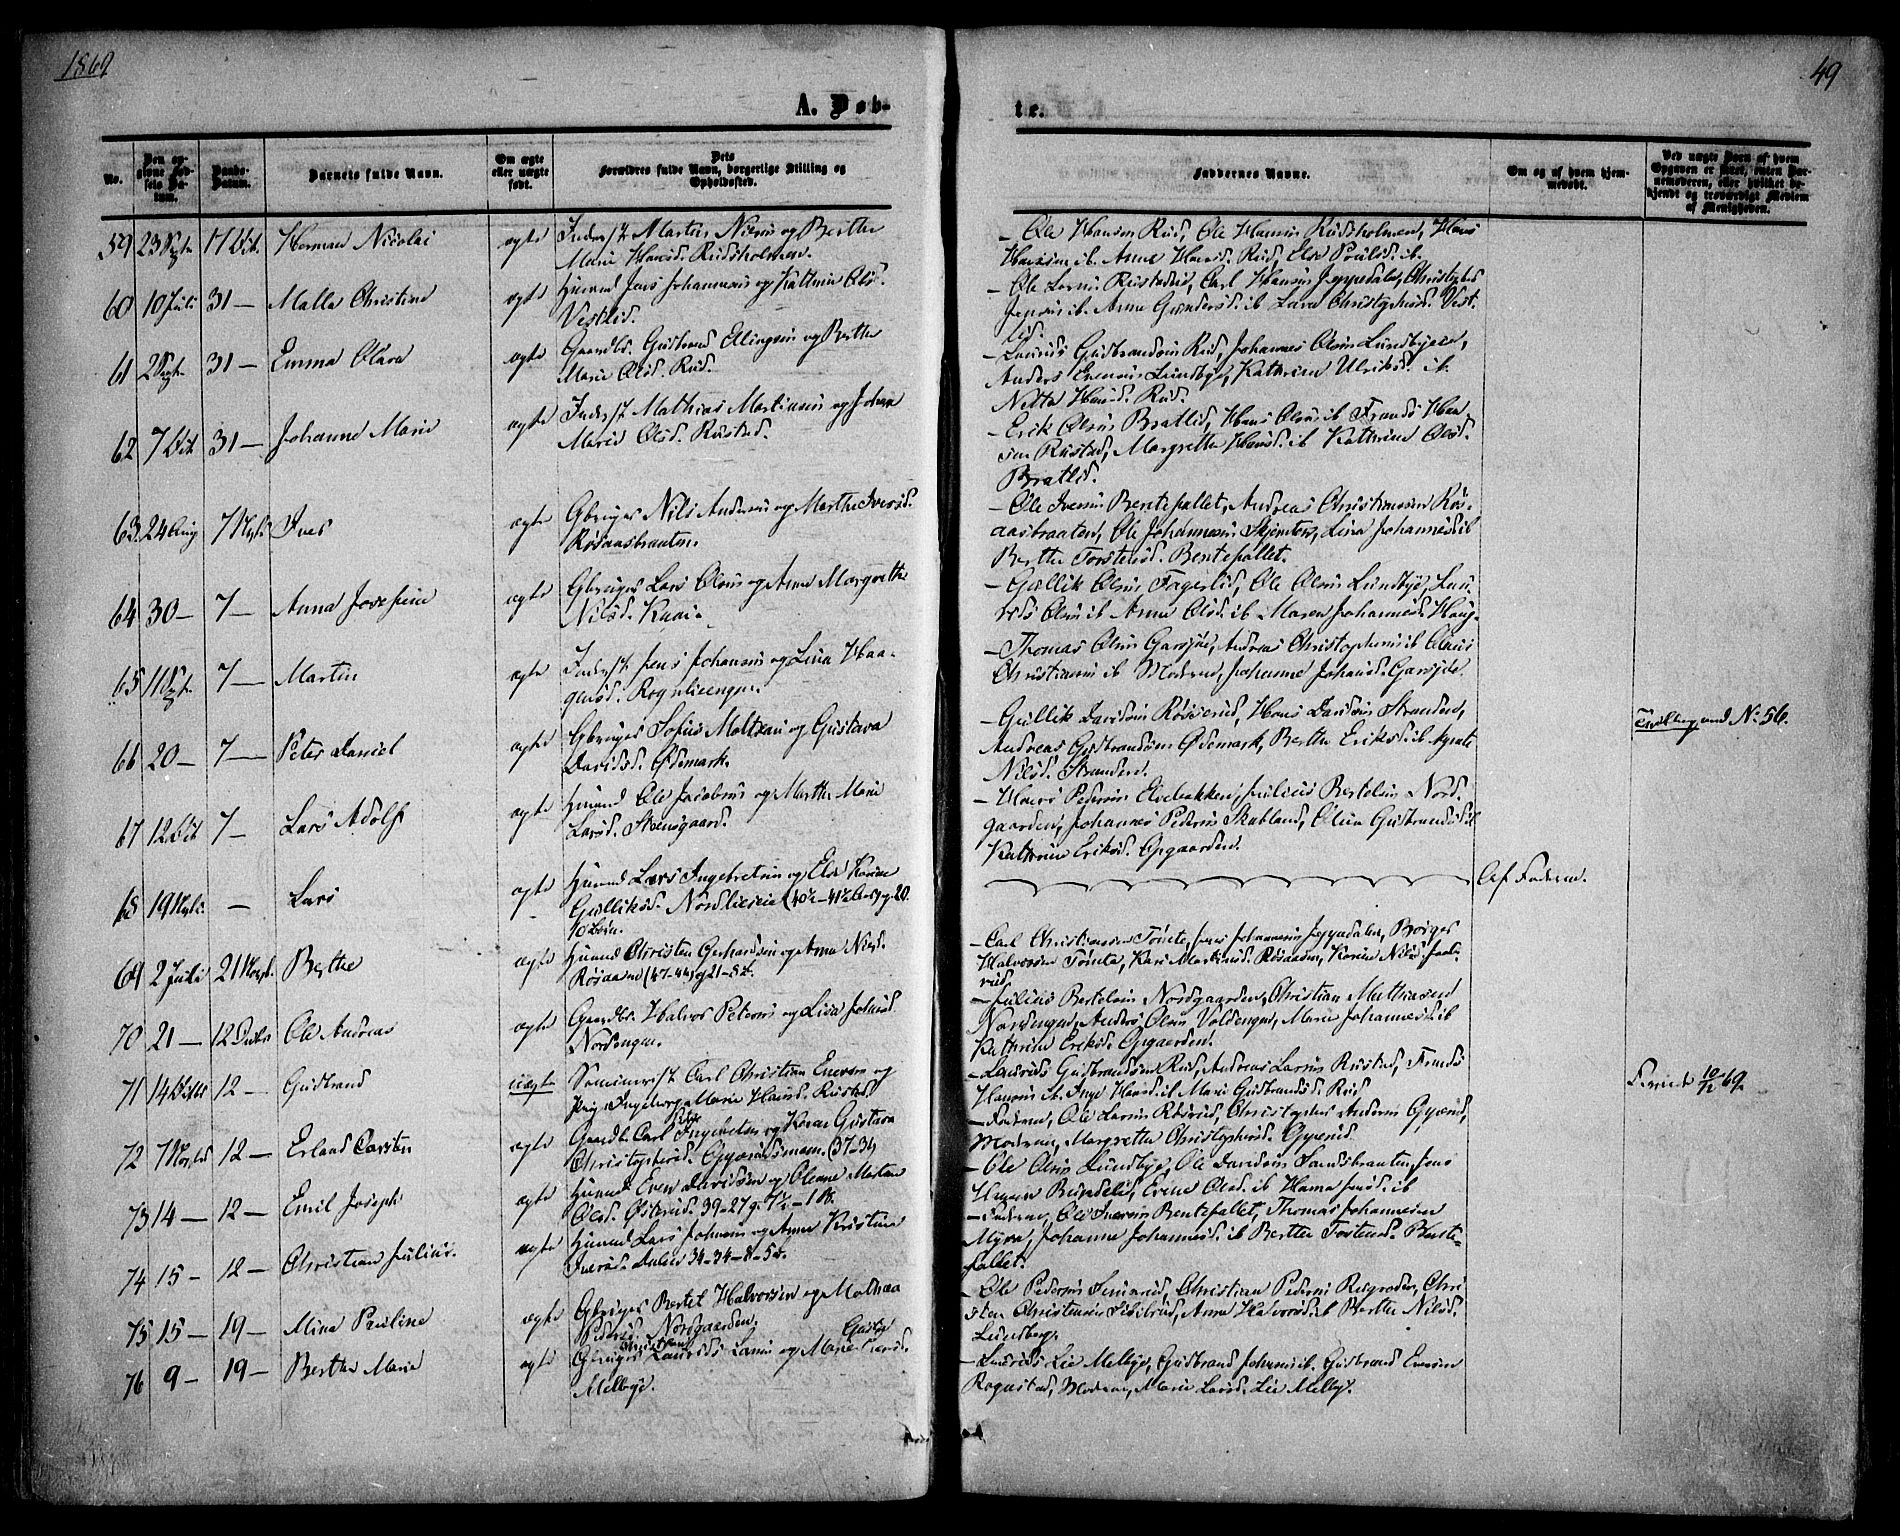 1869
49
A. Døb-
te.
No.
Den op-
givne Fød-
sels Da-
tum.
Daabs-
Datum.
Barnets fulde Navn.
Om ægte
eller uægte
født.
Dets
Forældres fulde Navn, borgerlige Stilling og
Opholdssted.
Faddernes Navne.
Om og af hvem hjem-
medøbt.
Ved uægte Børn af hvem
Opgaven er skeet, enten Bar-
nemoderen, eller hvilket be-
kjendt og troværdigt Medlem
af Menigheden.
59 23 Sept. 17 Oct. Herman Nicolai ægte Inderst Martin Nilsen og Berthe
Marie Hansd. Rudsholmen.
- Ole Hansen Rud, Ole Hansen Rudsholmen, Hans
Hansen ib. Anne Hansd. Rud, Else Poulsd. ib.
60 10 Juli 31 - Malla Christine ægte Huusmd Jens Johannesen og Kathrine Olsd.
Vestlid.
- Ole Larsen Rustadeie, Carl Hansen Jeppedalen, Christopher
Jensen ib. Anne Gundersd. ib Lava Christophersd. Vest-
lid.
61 2 Sept. 31 - Emma Olava ægte Gaardbr. Gudbrand Ellingsen og Berthe
Marie Olsd. Rud.
- Laurids Gudbrandsen Rud, Johannes Olsen Lundbyeie,
Anders Evensen Lundbye, Kathrine Ulriksd. ib.
Netta Hansd. Rud.
62 7 Oct. 31 - Johanne Marie ægte Inderst Mathias Martinsen og Johanne
Marie Olsd. Rustad.
- Erik Olsen Bratlid, Hans Olsen ib Frands Han-
sen Rustad, Margrethe Hansd. ib Kathrine Olsd.
Bratlid.
63 24 Aug 7 Novbr. Iver ægte Gbruger Nils Andersen og Marthe Iversd.
Rosaasbraaten.
- Ole Iversen Bentefallet, Andreas Christiansen Ros-
aasbraaten, Ole Johannesen Skjennten, Lina Johannesd. ib
Berthe Torstensd. Bentefallet.
64 30 - 7 - Anna Josefine ægte Gbruger Lars Olsen og Anne Margrethe
Nilsd. Kaai.
- Gullik Olsen Fagerlid, Ole Olsen Lundbye, Lau-
rids Olsen ib Anne Olsd. ib Maren Johannesd. Haug.
65 11 Sept. 7 - Martin ægte Inderst Jens Johansen og Lina Haa-
gensd. Rognlieengen.
- Thomas Olsen Garsjøe, Andreas Christophersen ib Olaus
Christiansen ib Moderen, Johanne Johansd. Garsjøe.
66 20 - 7 - Peter Daniel ægte Gbruger Sofus Moltzau og Gustava
Davidsd. Ødemark.
- Gullik Davidsen Røsserud, Hans Davidsen Stranden,
Andreas Gudbrandsen Ødemark, Berthe Eriksd. ib Agnete
Nilsd. Stranden.
Tvilling med No. 56.
67 12 Oct. 7 - Lars Adolf ægte Huusmd Ole Jacobsen og Marthe Marie
Larsd. Steensgaard.
- Hans Pedersen Elvebakken, Julius Bertelsen Nord-
gaarden, Johannes Pedersen Skabland, Olea Gudbrandsd. ib
Kathrine Eriksd. Opgaarden.
68 19 Novbr. - Lars ægte Huusmd Lars Ingebretsen og Else Karine
Gulliksd. Nordlieseie (40½-41½ aar) g. 20.
10 børn.
Af Faderen.
69 2 Juli 21 Novbr. Berthe ægte Huusmd Christen Gerhardsen og Anna Nilsd.
Rosaasen (47-44) g 21 - 8 b.
- Carl Christiansen Tømte, Jens Johannesen Jeppedalen, Børger
Halvorsen Tømte, Kari Martinsd. Rosaasen, Karine Nilsd.
70 21 - 12 Decbr Ole Andreas ægte Gaardbr. Halvor Petersen og Lisa Johansd.
Nordengen.
- Julius Bertelsen Nordgaarden, Christian Mathiesen
Nordengen, Anders Olsen Voldengen, Marie Johannesd. ib
Kathrine Eriksd. Opgaarden.
71 14 Octbr 12 - Gudbrand uægte Seminarist Carl Christian Enersen og
Pige Ingeborg Marie Hansd. Rustad.
- Laurids Gudbrandsen Rud, Andreas Larsen Rustad, Frands
Hansen ib. Inge Hansd. ib Mari Gudbrandsd. Rud.
12/12 69.
72 7 Novbr 12 - Erland Carsten ægte Gaardbr. Carl Ingebretsen og Karen Gustava
Christophersd. Gjperudsmoen. (37-34)
- Faderen, Ole Larsen Rosrud, Christopher Andersen Gyperud,
Moderen, Margrethe Christophersd. Gyperud.
73 14 - 12 - Emil Joseph ægte Huusmd Even Davidsen og Oleane Martine
Olsd. Østerud. 39-27 g. 7½ - 1 B.
- Ole Olsen Lundbye, Ole Davidsen Sandsbraaten, Jens
Hansen Bundelid, Evine Olsd. ib Hanna Jensd. ib
74 15 - 12 - Christian Julius. ægte Huusmd Lars Johnsen og Anne Kristine
Iversd. Dalen 34-34-8-5 b.
- Faderen, Ole Iversen Bentefallet, Thomas Johannesen
Myra, Johanne Johannesd. ib Berthe Torstensd. Bente-
fallet.
75 15 - 19 - Mina Pauline ægte Gbruger Bertel Halvorsen og Mathea
Pedersd. Nordgaarden.
- Ole Pedersen Semerud, Christian Pedersen Rugroden, Chri-
sten Christensen Sibilrud, Anne Halvorsd. ib Berthe Nilsd.
Lundberg.
76 9 - 19 - Berthe Marie ægte Gbruger Laurids Larsen og Marie
Melbye.
- Laurids Lie Melbye, Gudbrand Johansen ib. Gudbrand Evensen
Rognstad, Moderen, Marie Larsd. Lie Melby.